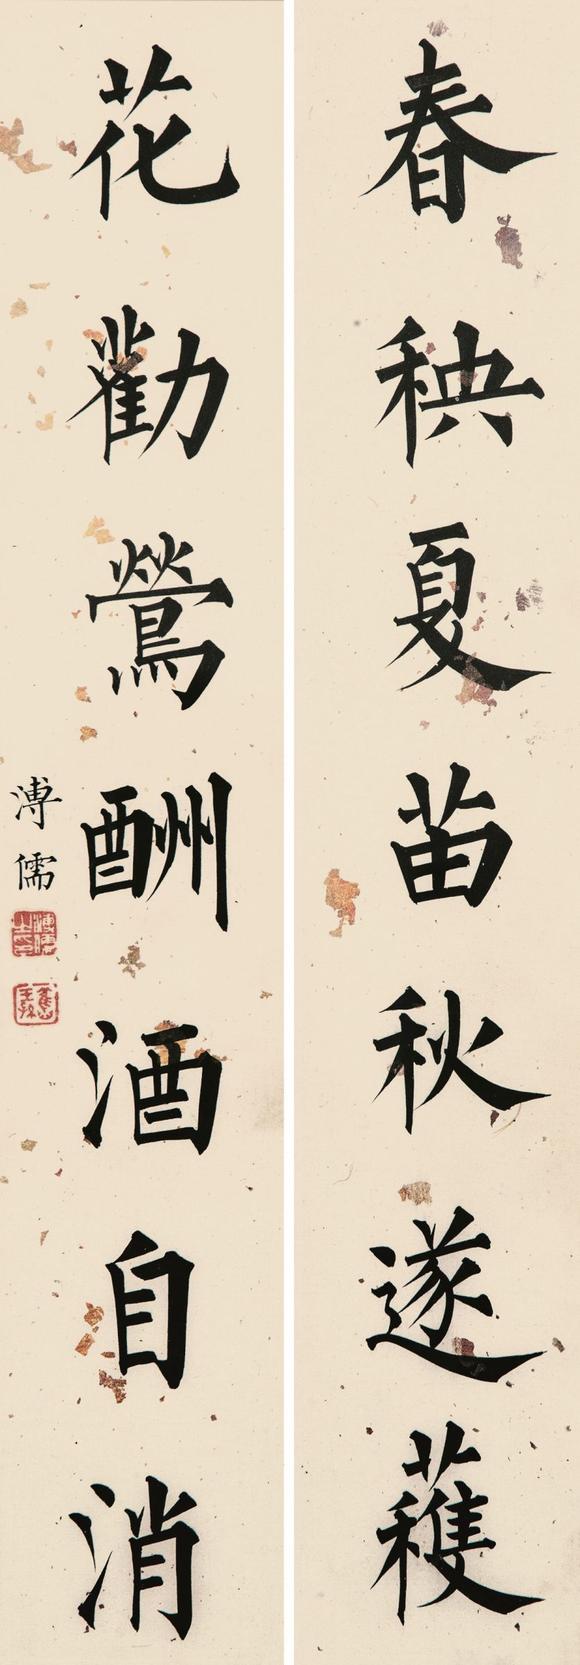 春秧夏苗秋遂穫
花勸鶯酬酒自消
溥儒